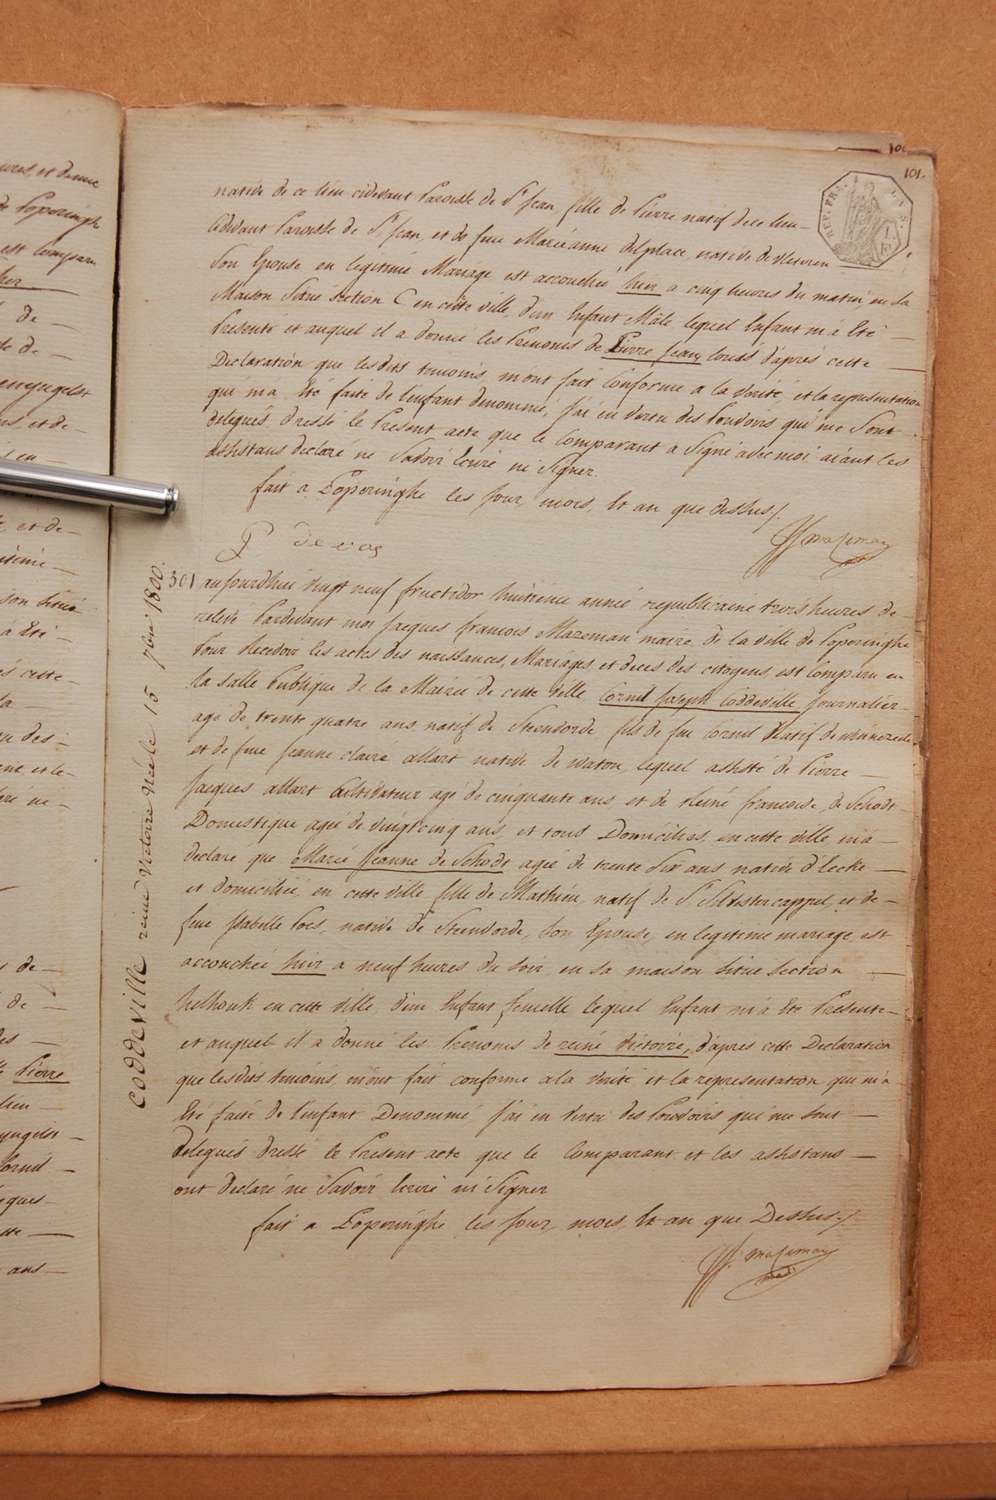 101.
REP. FRA.
native de ce lieu cidevant Paroisse de St Jean, fille de Pierre natif de ce lieu
Cidevant Paroisse de St Jean, et de feue Marie anne Delplace, native de
Son Epouse en legitime Mariage est accouchée hier a cinq heures du matin, en sa
Maison Scitué section C en cette ville, d'un Enfant Mâle lequel Enfant m'a Eté
Presenté et auquel il a donné les Prenoms de Pierre Jean Louis d'après cette
Declaration que les dits temoins, m'ont fait Conforme a la verité, et la representation
qui m'a Eté faite de l'enfant denommé, j'ai en vertu des Pouvoirs qui me Sont
delegués, dressé le Present acte que le Comparant a Signé avec moi aiant les
assistans declaré ne Savoir Ecrire ni Signer.
fait a Poperinghe les jour, mois, Et an que dessus/.
P de vos
301 aujourdhui vingt neuf fructidor huitieme année republicaine trois heures de
relevé Pardevant moi Jacques francois Mazeman maire de la ville de Poperinghe
Pour Recevoir les actes des naissances, Mariages et deces des citoyens, est Comparu en
la salle Publique de la Mairie de cette ville Cornil Joseph Coddeville journalier
agé de trente quatre ans natif de Steenvorde fils de feu Cornil Natif de
et de feue Jeanne claire allart native de waton, lequel assisté de Pierre
Jacques allart Cultivateur agé de cinquante ans et de Reiné francoise de Schodt
Domestique agée de vingt cinq ans, et tous Domiciliés, en cette ville m'a
declaré que Marie Jeanne de Schodt agée de trente Six ans native d'Eecke
et domiciliée en cette ville fille de Mathieu, natif de St Silvester cappel, et de
feue Isabelle Loes, native de Steenvorde, Son Epouse, en legitime mariage, est
accouchée hier a neuf heures du Soir en sa maison Situe Section
helhouk en cette ville, d'un Enfant femelle lequel Enfant m'a Eté Presente
et auquel il a donné les Prenoms de reiné Victoire, d'après cette Declaration
que les dits temoins m'ont fait conforme a la verité et la representation qui m'a
Eté faite de l'enfant Denommé j'ai en vertu des Pouvoirs qui me sont
delegués dressé le Present acte que le Comparant et les assistans
ont declaré ne Savoir Ecrire ni Signer
fait a Poperinghe les jour, mois, Et an que Dessus/.
Coddeville reine Victoire Née le 15 7bre 1800.